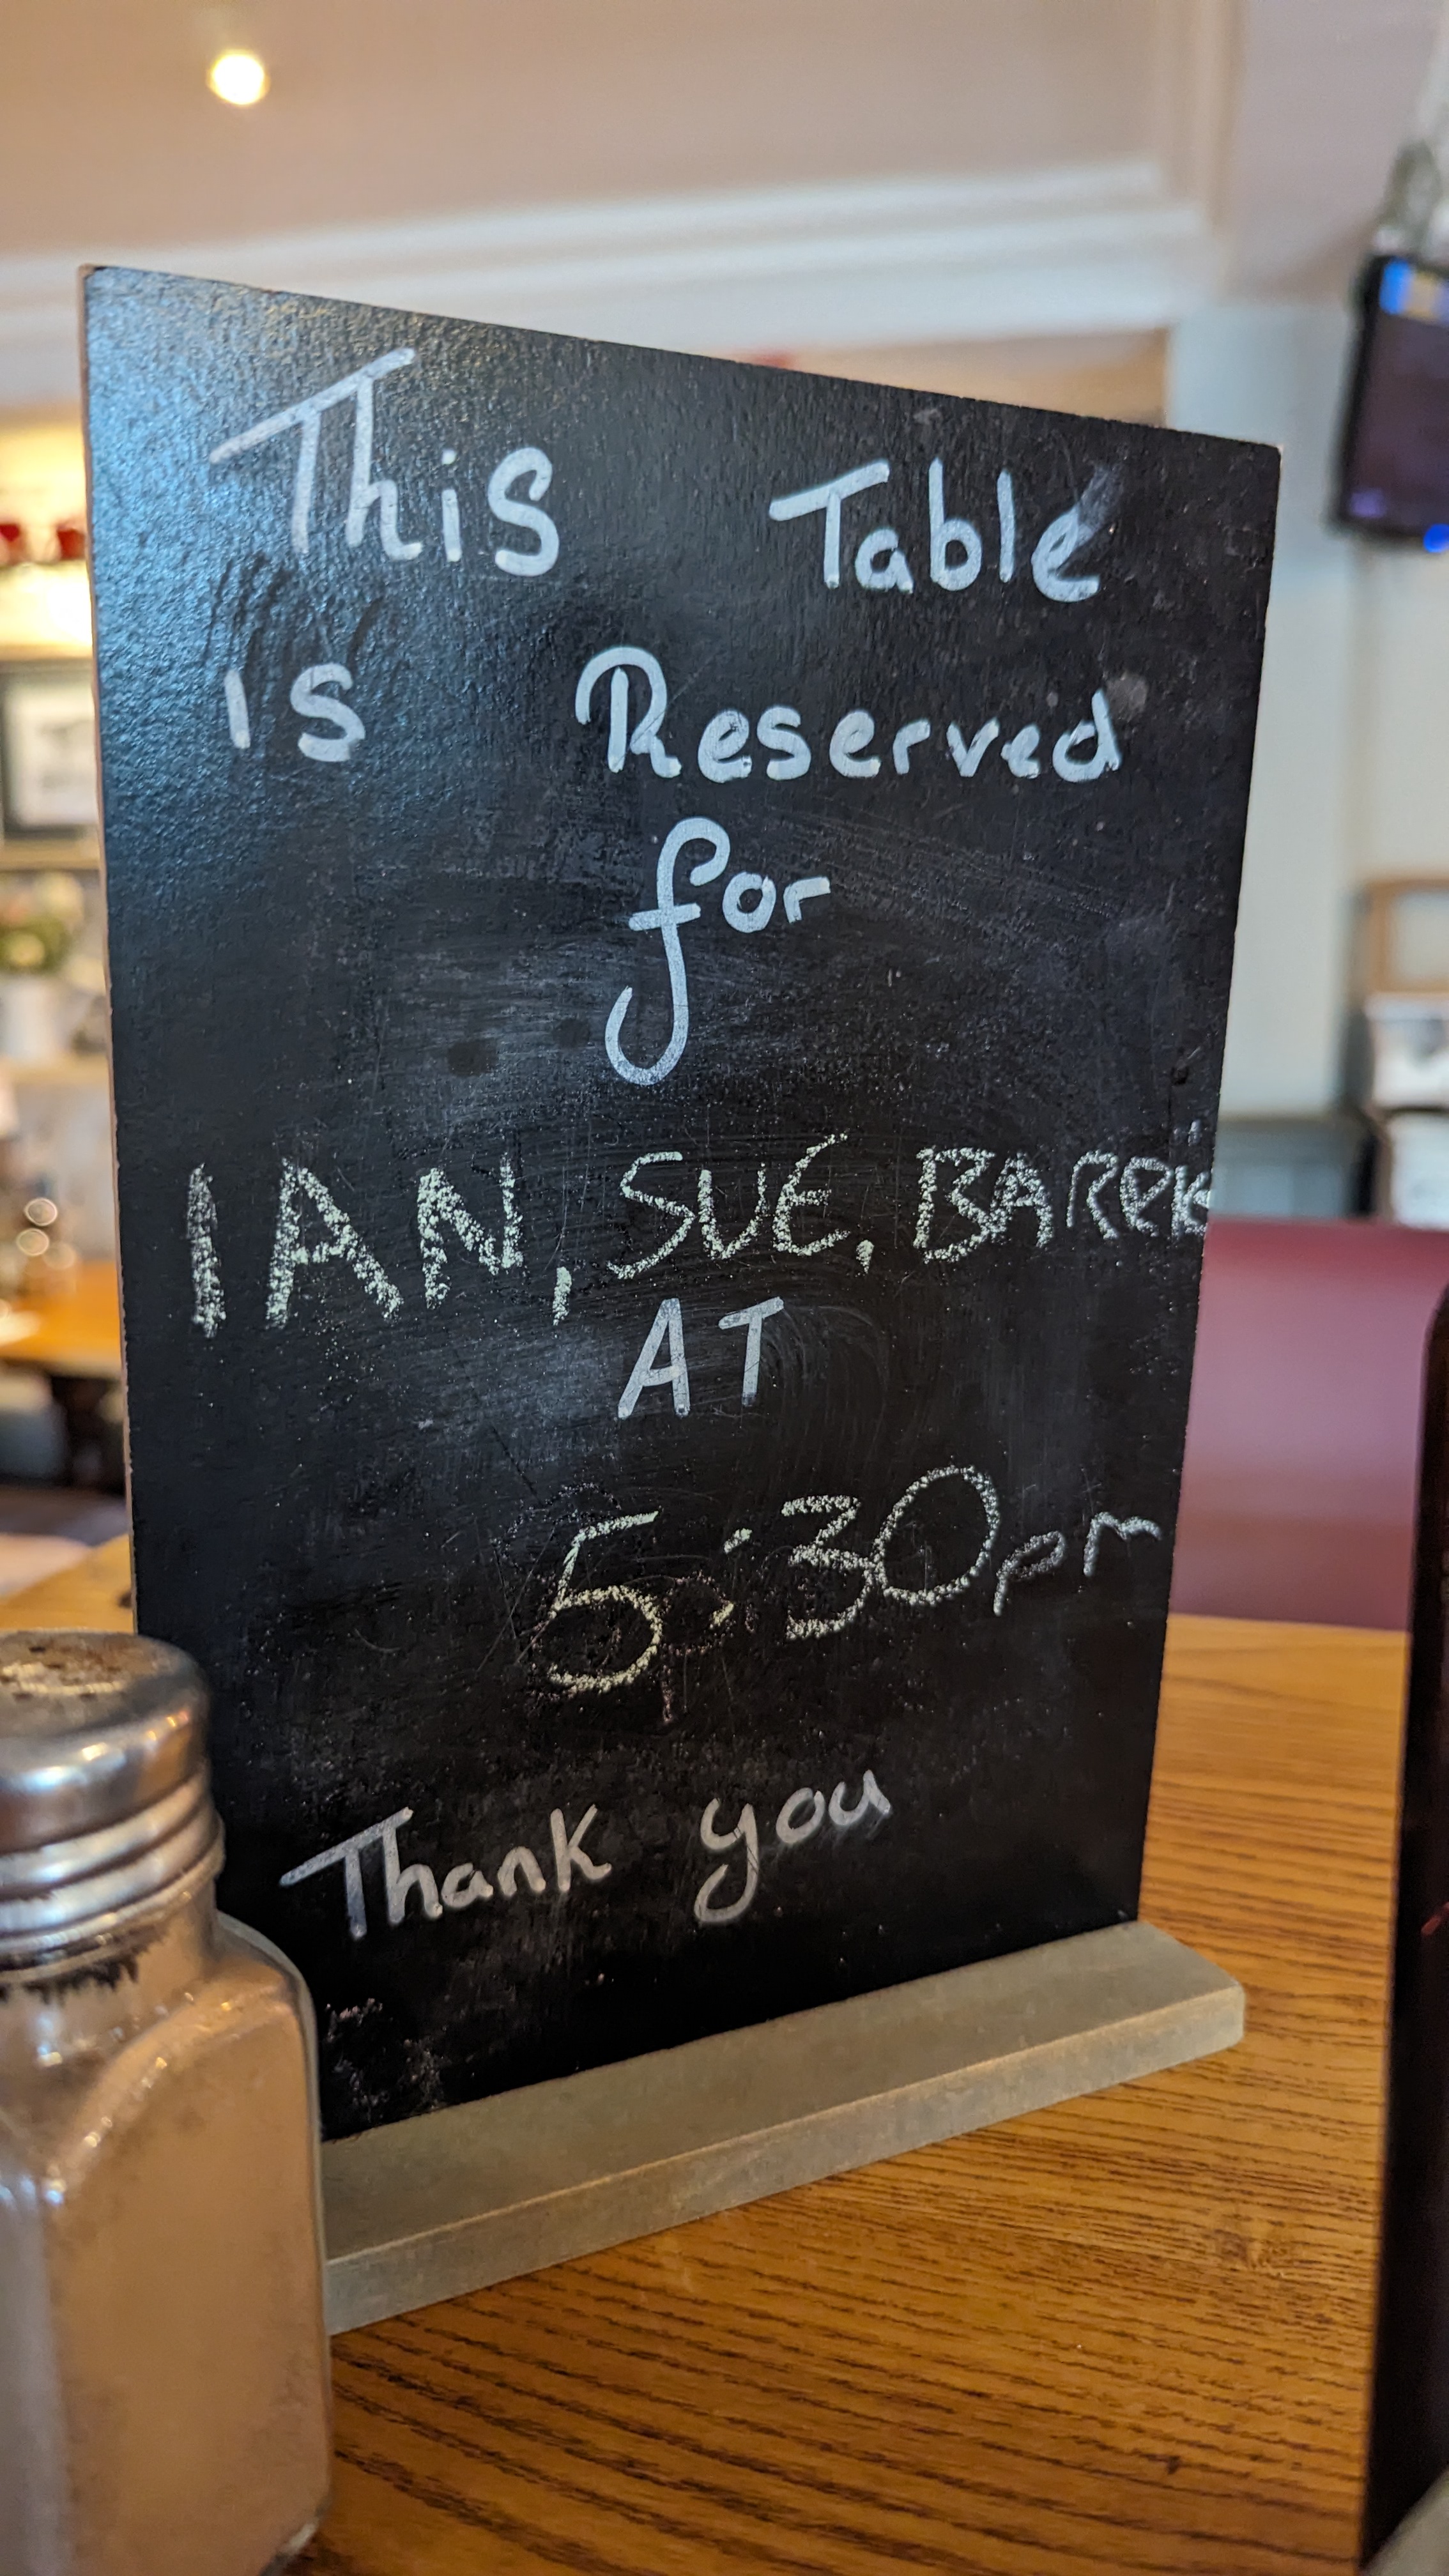 This Table
is Reserved
for
IAN, SUE, BAREK
AT
5:30pm
Thank you